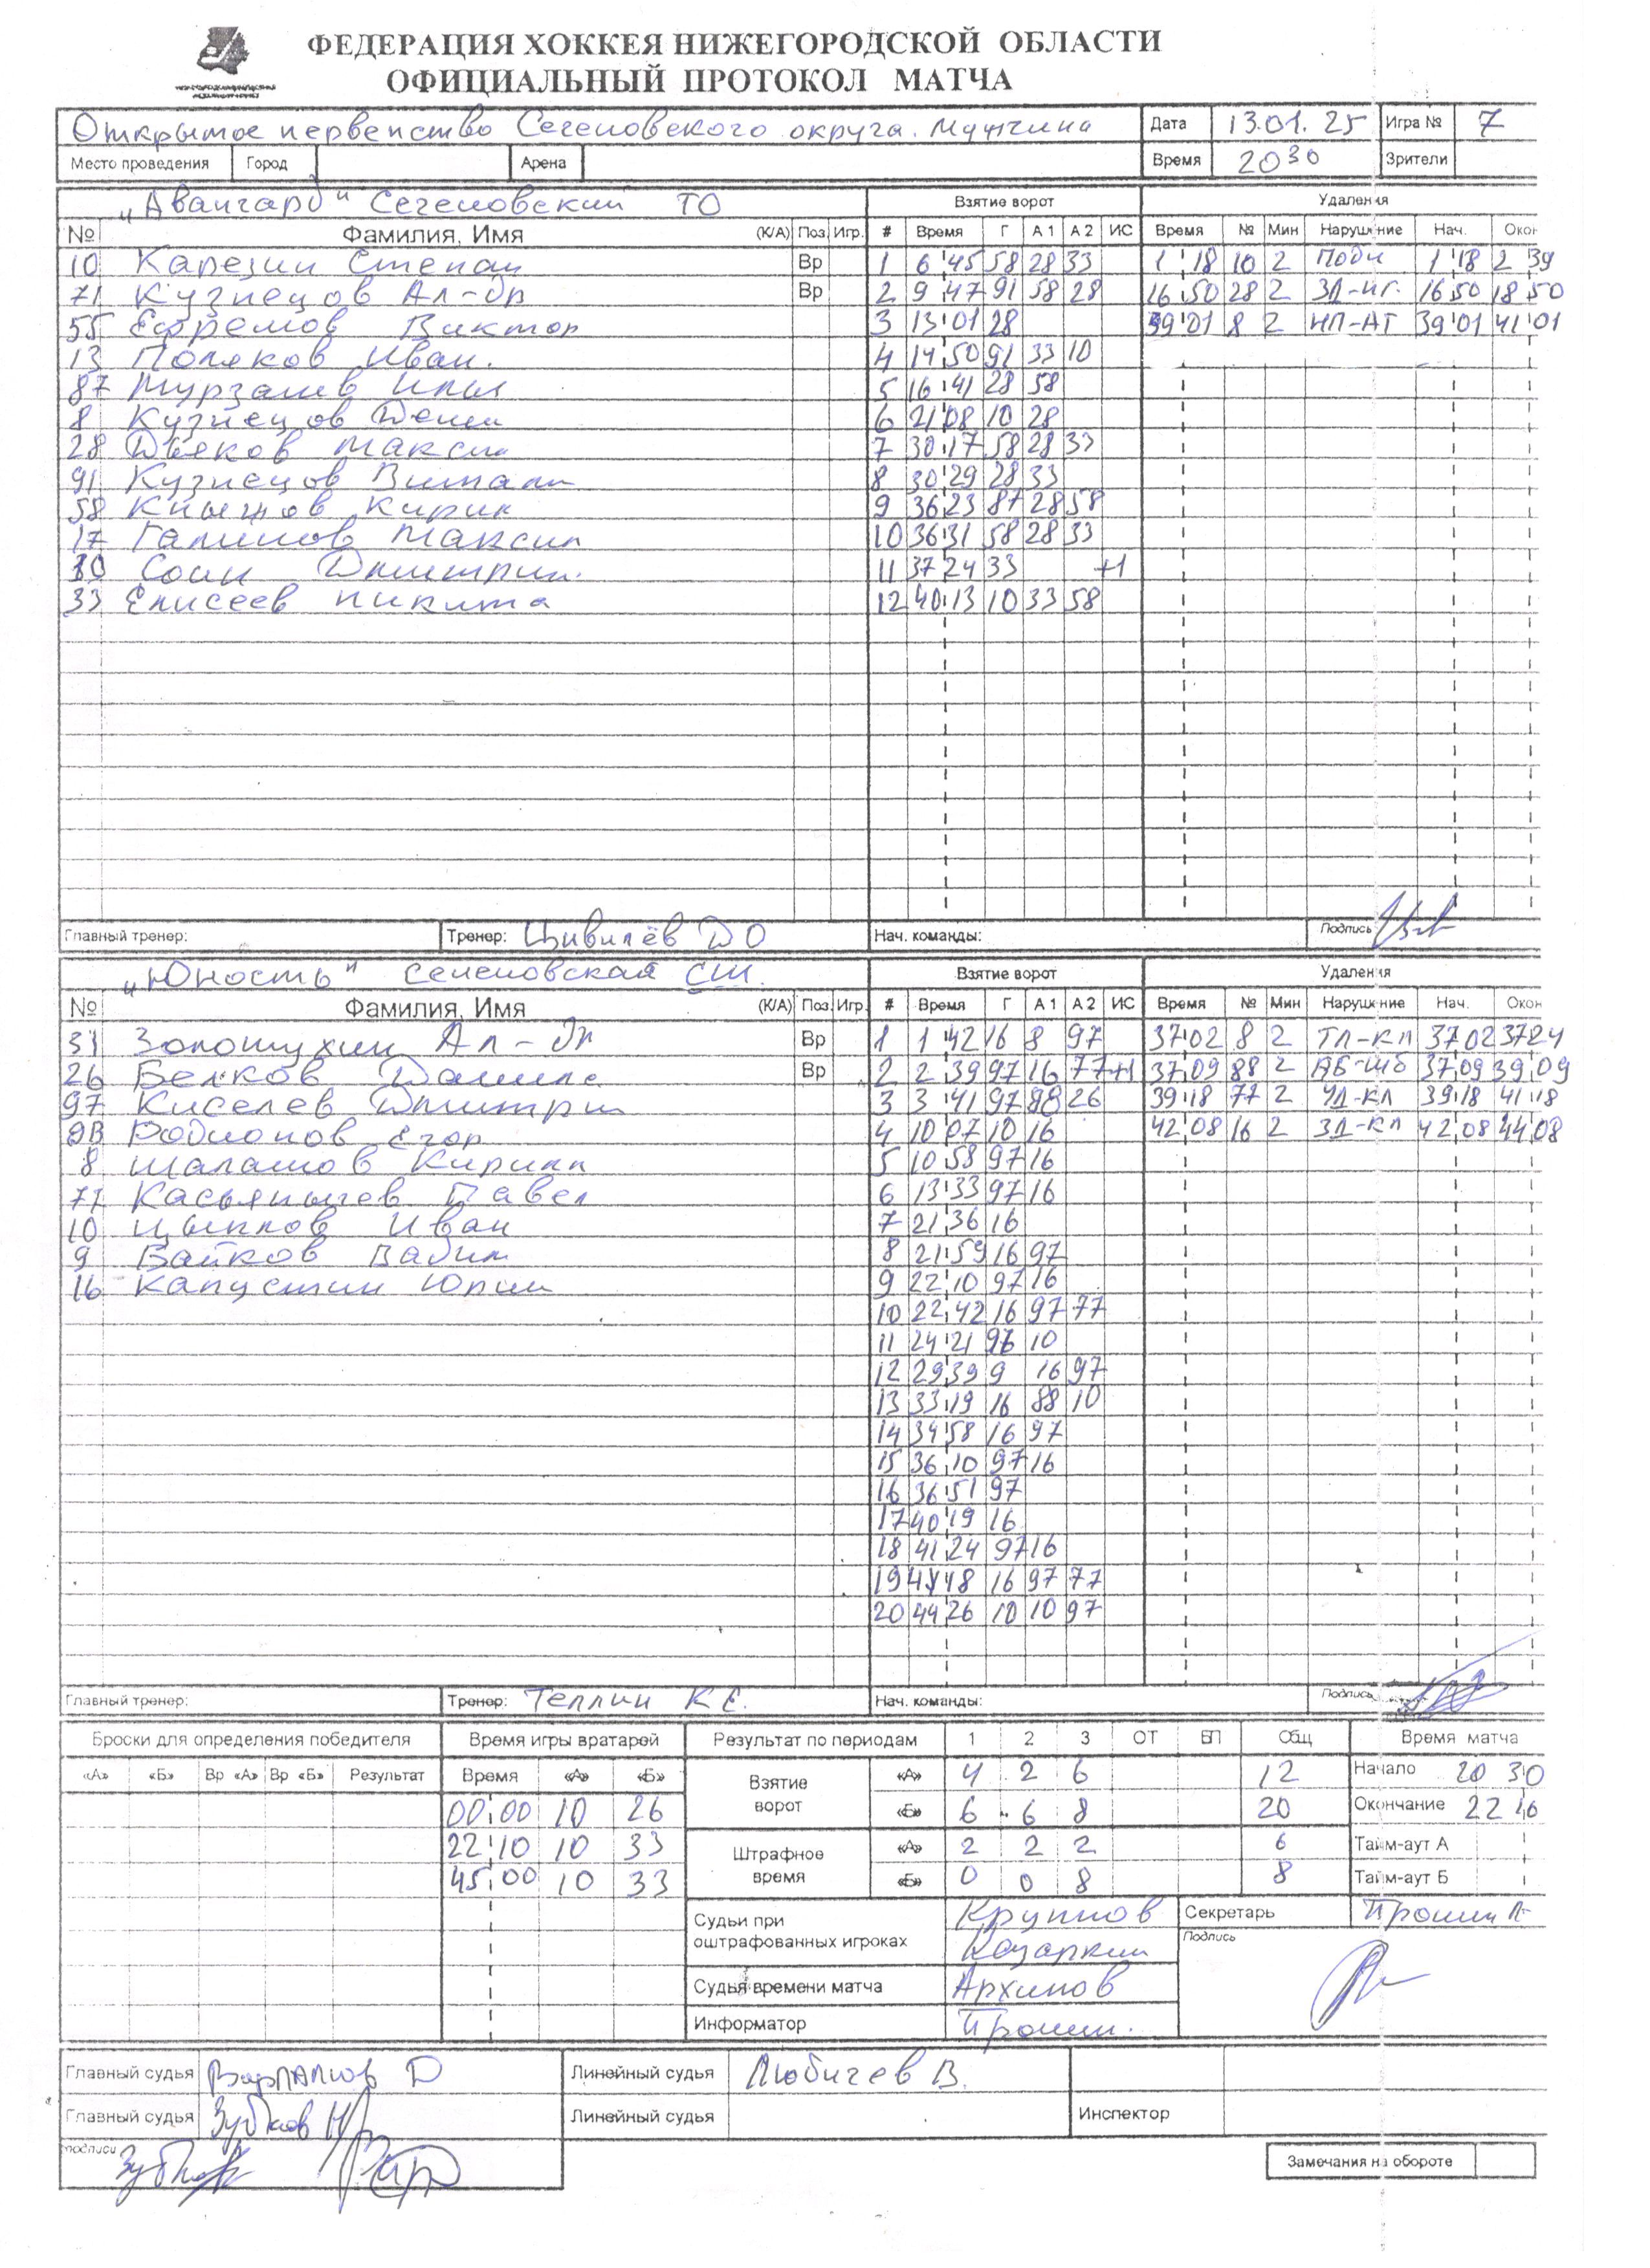 ФЕДЕРАЦИЯ ХОККЕЯ НИЖЕГОРОДСКОЙ ОБЛАСТИ
ОФИЦИАЛЬНЫЙ ПРОТОКОЛ МАТЧА
Открытое первенство Сеченовского округа. Мужчина Дата 13.01.25 Игра № 7
Место проведения Город Арена Время 20 30 Зрители
"Авангард" Сеченовский ТО Взятие ворот Удаления
№ Фамилия, Имя (К/А) Поз. Игр. # Время Г А 1 А 2 ИС Время № Мин Нарушение Нач. Окон
10 Карезин Степан Вр 1 6 45 58 28 33 1 18 10 2 Подн 1 18 2 39
71 Кузнецов Ал-др Вр 2 9 47 91 58 28 16 50 28 2 ЗД-КГ. 16 50 18 50
55 Ефремов Виктор 3 13 01 28 39 01 8 2 НП-АТ 39 01 41 01
13 Поляков Иван. 4 14 50 91 33 10
87 Мурзаев Илья 5 16 41 28 58
8 Кузнецов Денис 6 21 08 10 28
28 Дьяков Максим 7 30 17 58 28 33
91 Кузнецов Витали 8 30 29 28 33
58 Кирилл 9 36 23 87 28 58
17 Галинов Максим 10 36 31 58 28 33
Соин Дмитрий. 11 37 24 33 +1
33 Елисеев Никита 12 40 13 10 33 58
Главный тренер: Тренер: Цивилёв ДО Нач. команды: Подпись
"Юность" Сеченовская СШ. Взятие ворот Удаления
№ Фамилия, Имя (К/А) Поз. Игр. # Время Г А 1 А 2 ИС Время № Мин Нарушение Нач. Окон
31 Золотухин Ал-др Вр 1 1 42 16 8 97 37 02 8 2 ТЛ-КЛ 37 02 37 24
26 Белков Данила Вр 2 2 39 97 16 77 +1 37 09 88 2 АБ-ШБ 37 09 39 09
97 Киселев Дмитрий 3 3 41 97 88 26 39 18 77 2 УД-КЛ 39 18 41 18
Родионов Егор 4 10 07 10 16 42 08 16 2 ЗД-КЛ 42 08 44 08
8 Шалашов Кирилл 5 10 58 97 16
77 Касьянычев Павел 6 13 33 97 16
10 Цыплов Иван 7 21 36 16
9 Вайков Вадим 8 21 59 16 97
16 Капустин Юрий 9 22 10 97 16
10 22 42 16 97 77
11 24 21 10
12 29 39 9 16 97
13 33 19 16 88 10
14 34 58 16 97
15 36 10 97 16
16 36 51 97
17 40 19 16
18 41 24 97 16
19 48 16 97 77
20 44 26 10 10 97
Главный тренер: Тренер: Теллин К Е. Нач. команды: Подпись
Броски для определения победителя Время игры вратарей Результат по периодам 1 2 3 ОТ БП Общ Время матча
«А» «Б» Вр «А» Вр «Б» Результат Время «А» «Б» Взятие ворот «А» 4 2 6 12 Начало 20 30
00 00 10 26 «Б» 6 6 8 20 Окончание 22 16
22 10 10 33 Штрафное время «А» 2 2 2 6 Тайм-аут А
45 00 10 33 «Б» 0 0 8 8 Тайм-аут Б
Судьи при оштрафованных игроках Круглов Секретарь Пронин А
Казаркин Подпись
Судья времени матча Архипов
Информатор Пронин.
Главный судья Варламов Д Линейный судья Любичев В.
Главный судья Зубков Линейный судья Инспектор
подписи Зубков
Замечания на обороте